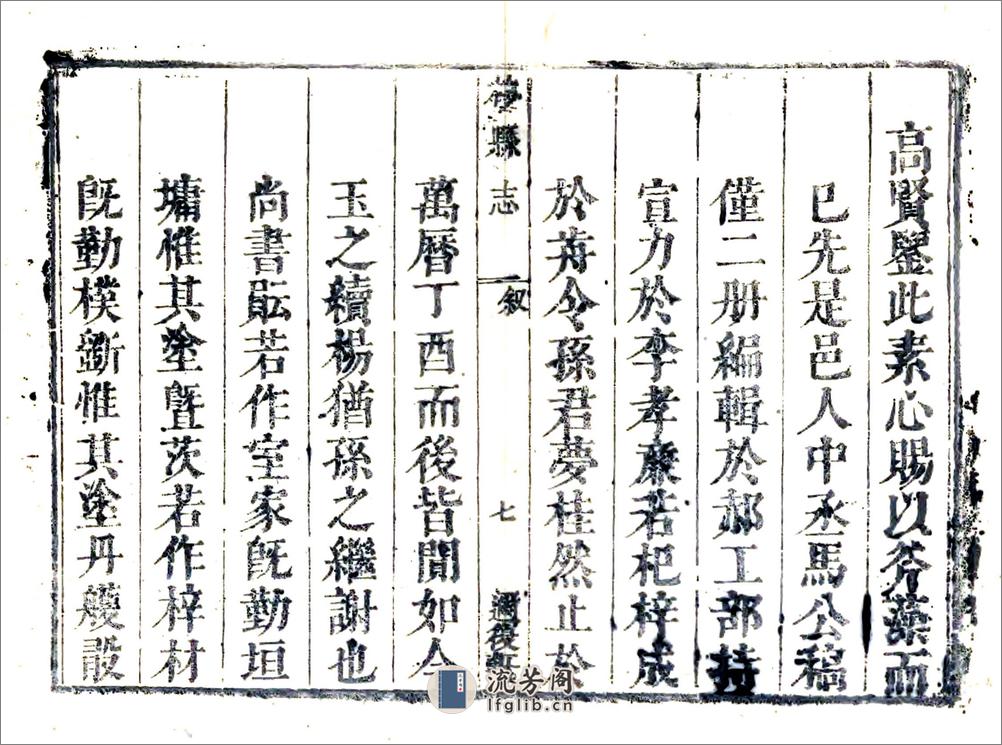 高賢鑒此素心賜以斧藻而
已先是邑人中丞馬公稿
僅二册編輯於郝工部持
宣力於李孝廉若杞梓成
於苒令孫君夢桂然止於
縣志 叙 七
萬曆丁酉而後皆闕如今
玉之續楊猶孫之繼謝也
尚書貺若作室家旣勤垣
墉惟其塗曁茨若作梓材
旣勤樸斲惟其塗丹艧設
流芳阁
lfglib.cn